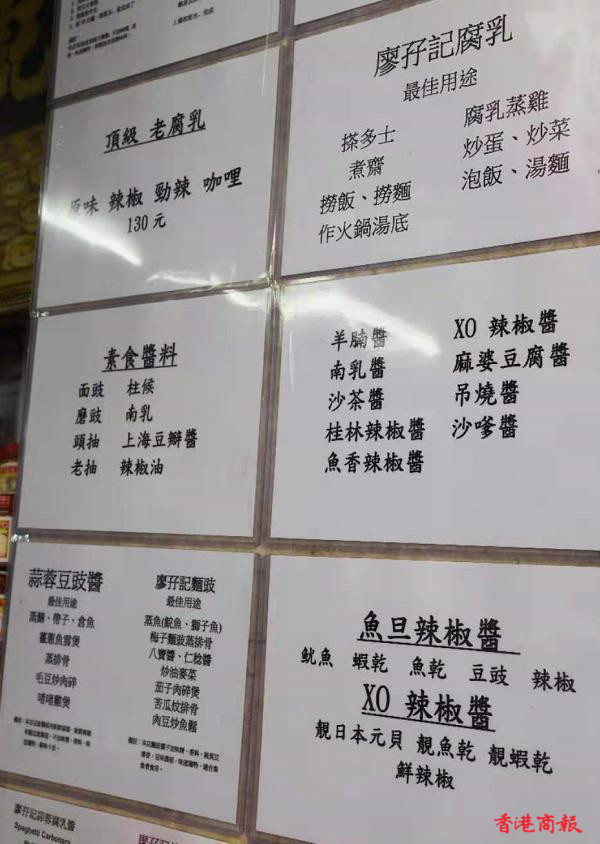 頂級 老腐乳
原味 辣椒 勁辣 咖哩
130 元
廖孖記腐乳
最佳用途
搽多士
煮齋
撈飯、撈麵
作火鍋湯底
腐乳蒸雞
炒蛋、炒菜
泡飯、湯麵
素食醬料
面豉 柱候
磨豉 南乳
頭抽 上海豆瓣醬
老抽 辣椒油
羊腩醬
南乳醬
沙茶醬
桂林辣椒醬
魚香辣椒醬
XO 辣椒醬
麻婆豆腐醬
吊燒醬
沙嗲醬
蒜蓉豆豉醬
最佳用途
帶子、倉魚
薑蔥魚雲煲
蒸排骨
毛豆炒肉碎
啫啫雞煲
廖孖記麵豉
最佳用途
蒸魚(鯇魚、獅子魚)
梅子麵豉蒸排骨
八寶醬、仁稔醬
炒油麥菜
茄子肉碎煲
苦瓜炆排骨
肉豆炒魚鬆
魚旦辣椒醬
魷魚 蝦乾 魚乾 豆豉 辣椒
XO 辣椒醬
靚日本元貝 靚魚乾 靚蝦乾
鮮辣椒
廖孖記蒜蓉腐乳醬
Spaghetti Carbonara
香港商報